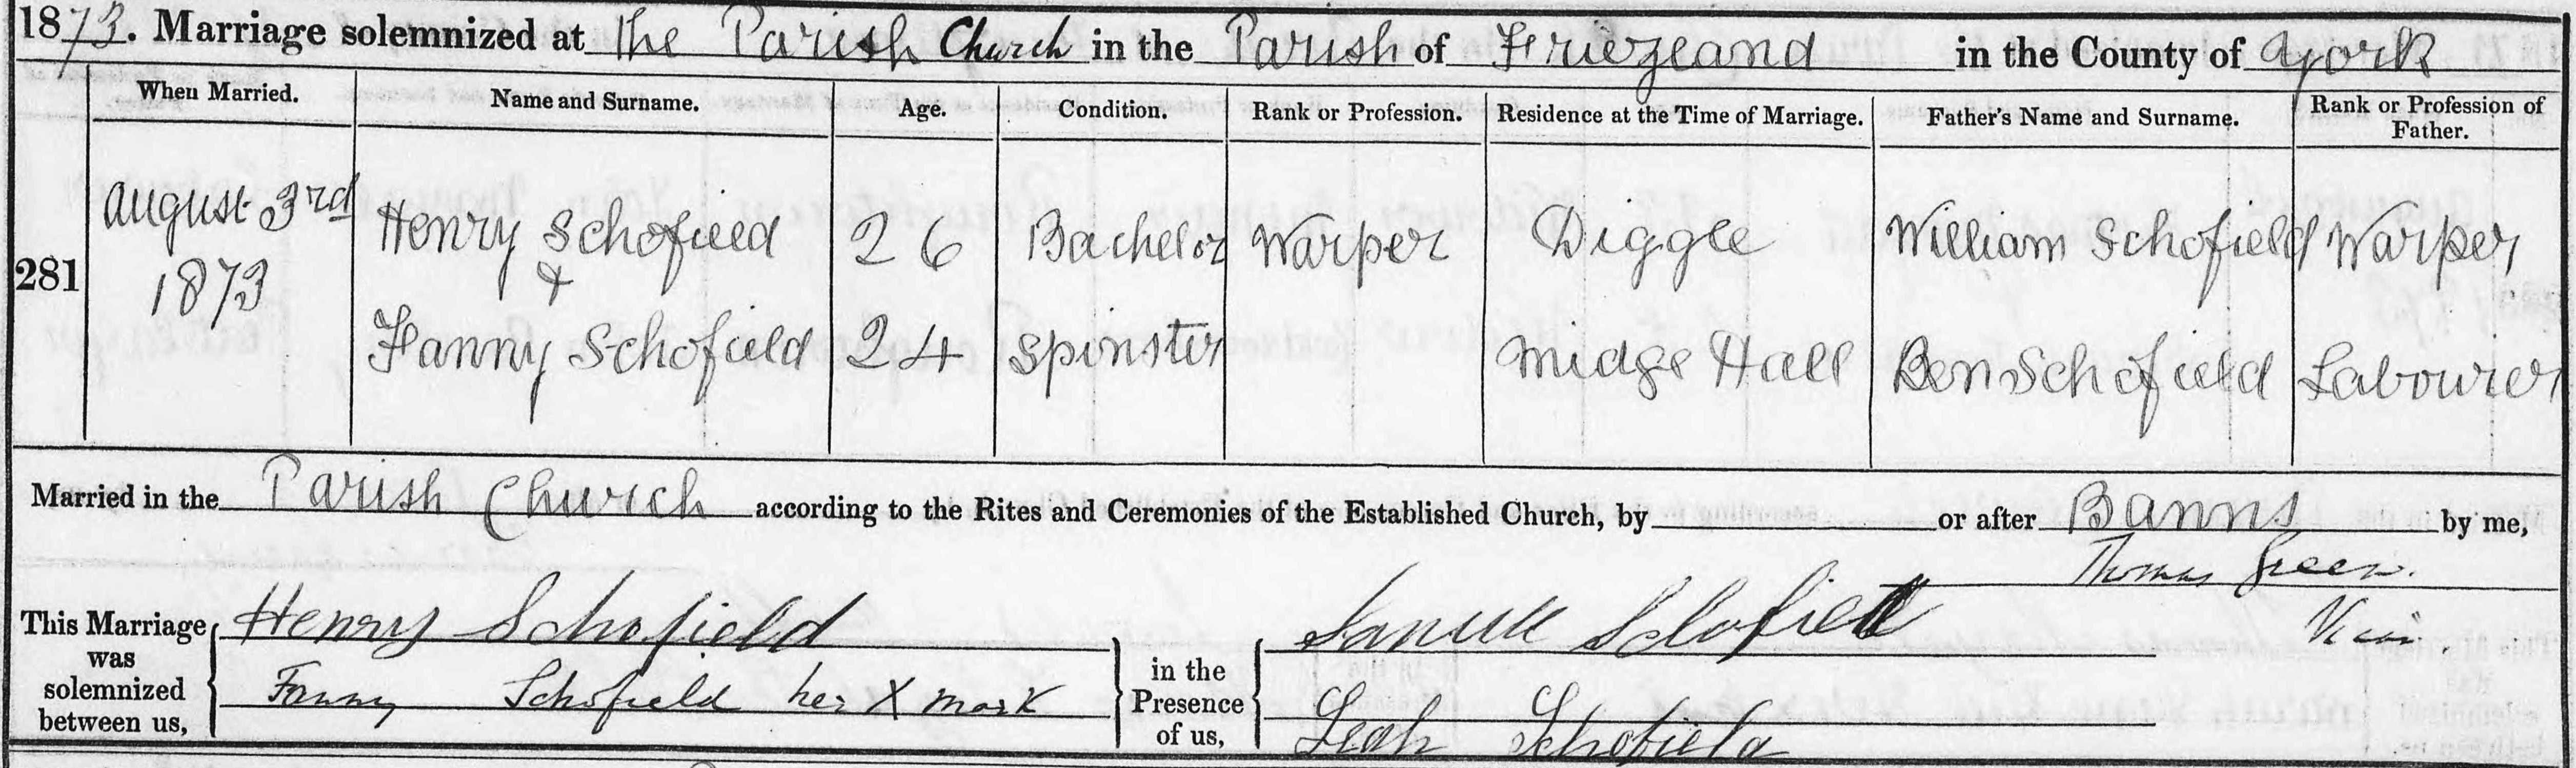 1873. Marriage solemnized at the Parish Church in the Parish of Friezland in the County of York
When Married. Name and Surname. Age. Condition. Rank or Profession. Residence at the Time of Marriage. Father's Name and Surname. Rank or Profession of Father.
281 August 3rd 1873 Henry Schofield 26 Bachelor Warper Diggle William Schofield Warper
&
Fanny Schofield 24 Spinster Midge Hall Ben Schofield Labourer
Married in the Parish Church according to the Rites and Ceremonies of the Established Church, by or after Banns by me,
Thomas Green.
Vicar.
This Marriage was solemnized between us, Henry Schofield
Fanny Schofield her X mark
in the Presence of us, Schofield
Leah Schofield